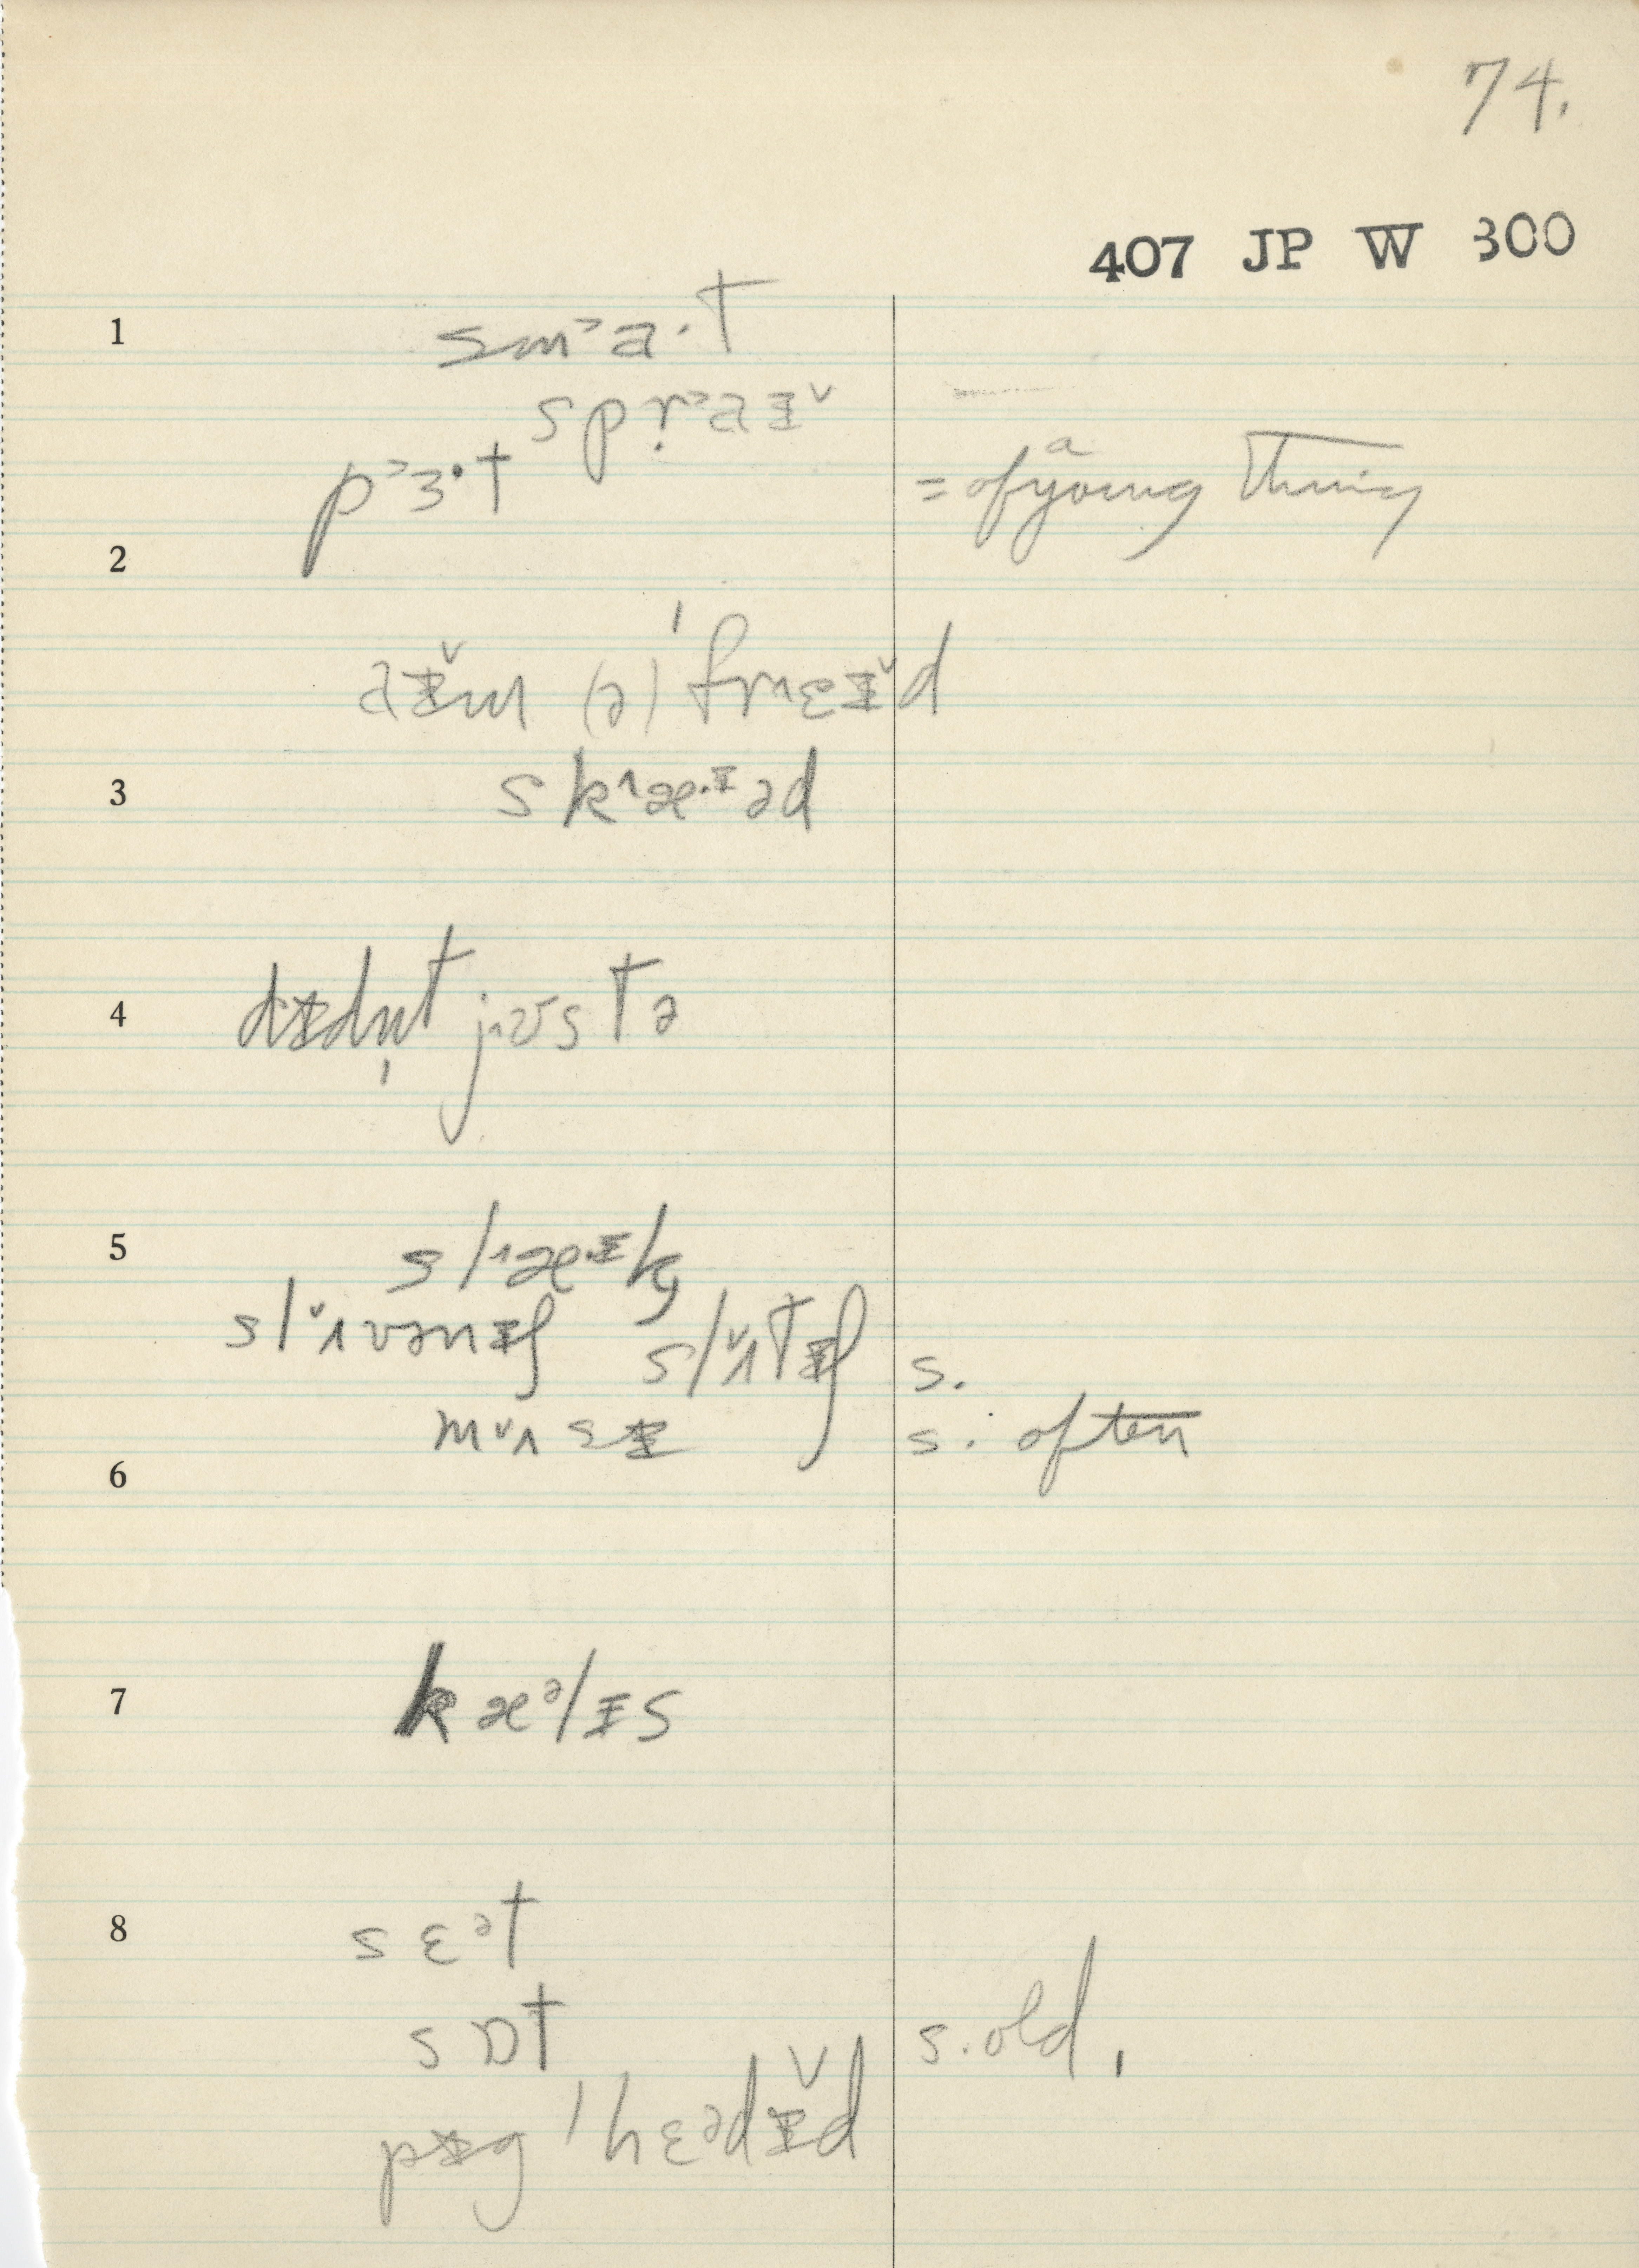 74.
407 JP W 300
1 sm˃a·t
spṛ˃aɪ˅
p˃ɜ·t = of a young thing
2
aɪ˅m (ə) 'fr˄ɛɪ˅d
3 sk˄æ·ɪəd
4 dɪdn̩t j˄ʊstə
5 sl˄æ·ɪk
sl˅ʌvənɪʃ sl˅ʌtɪʃ s.
m˅ʌsɪ s. often
6
7 kæᵊlɪs
8 sɛᵊt
sɒt s. old.
pɪg 'hɛᵊdɪ˅d